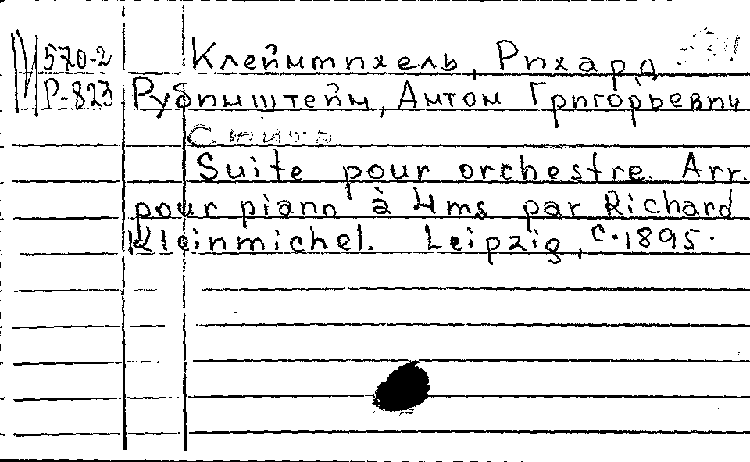 М 570-2 Клейнмихель, Рихард
Р-823 Рубинштейн, Антон Григорьевич
Suite pour orchestre. Arr.
pour piano à 4ms par Richard
Kleinmichel. Leipzig, c. 1895.